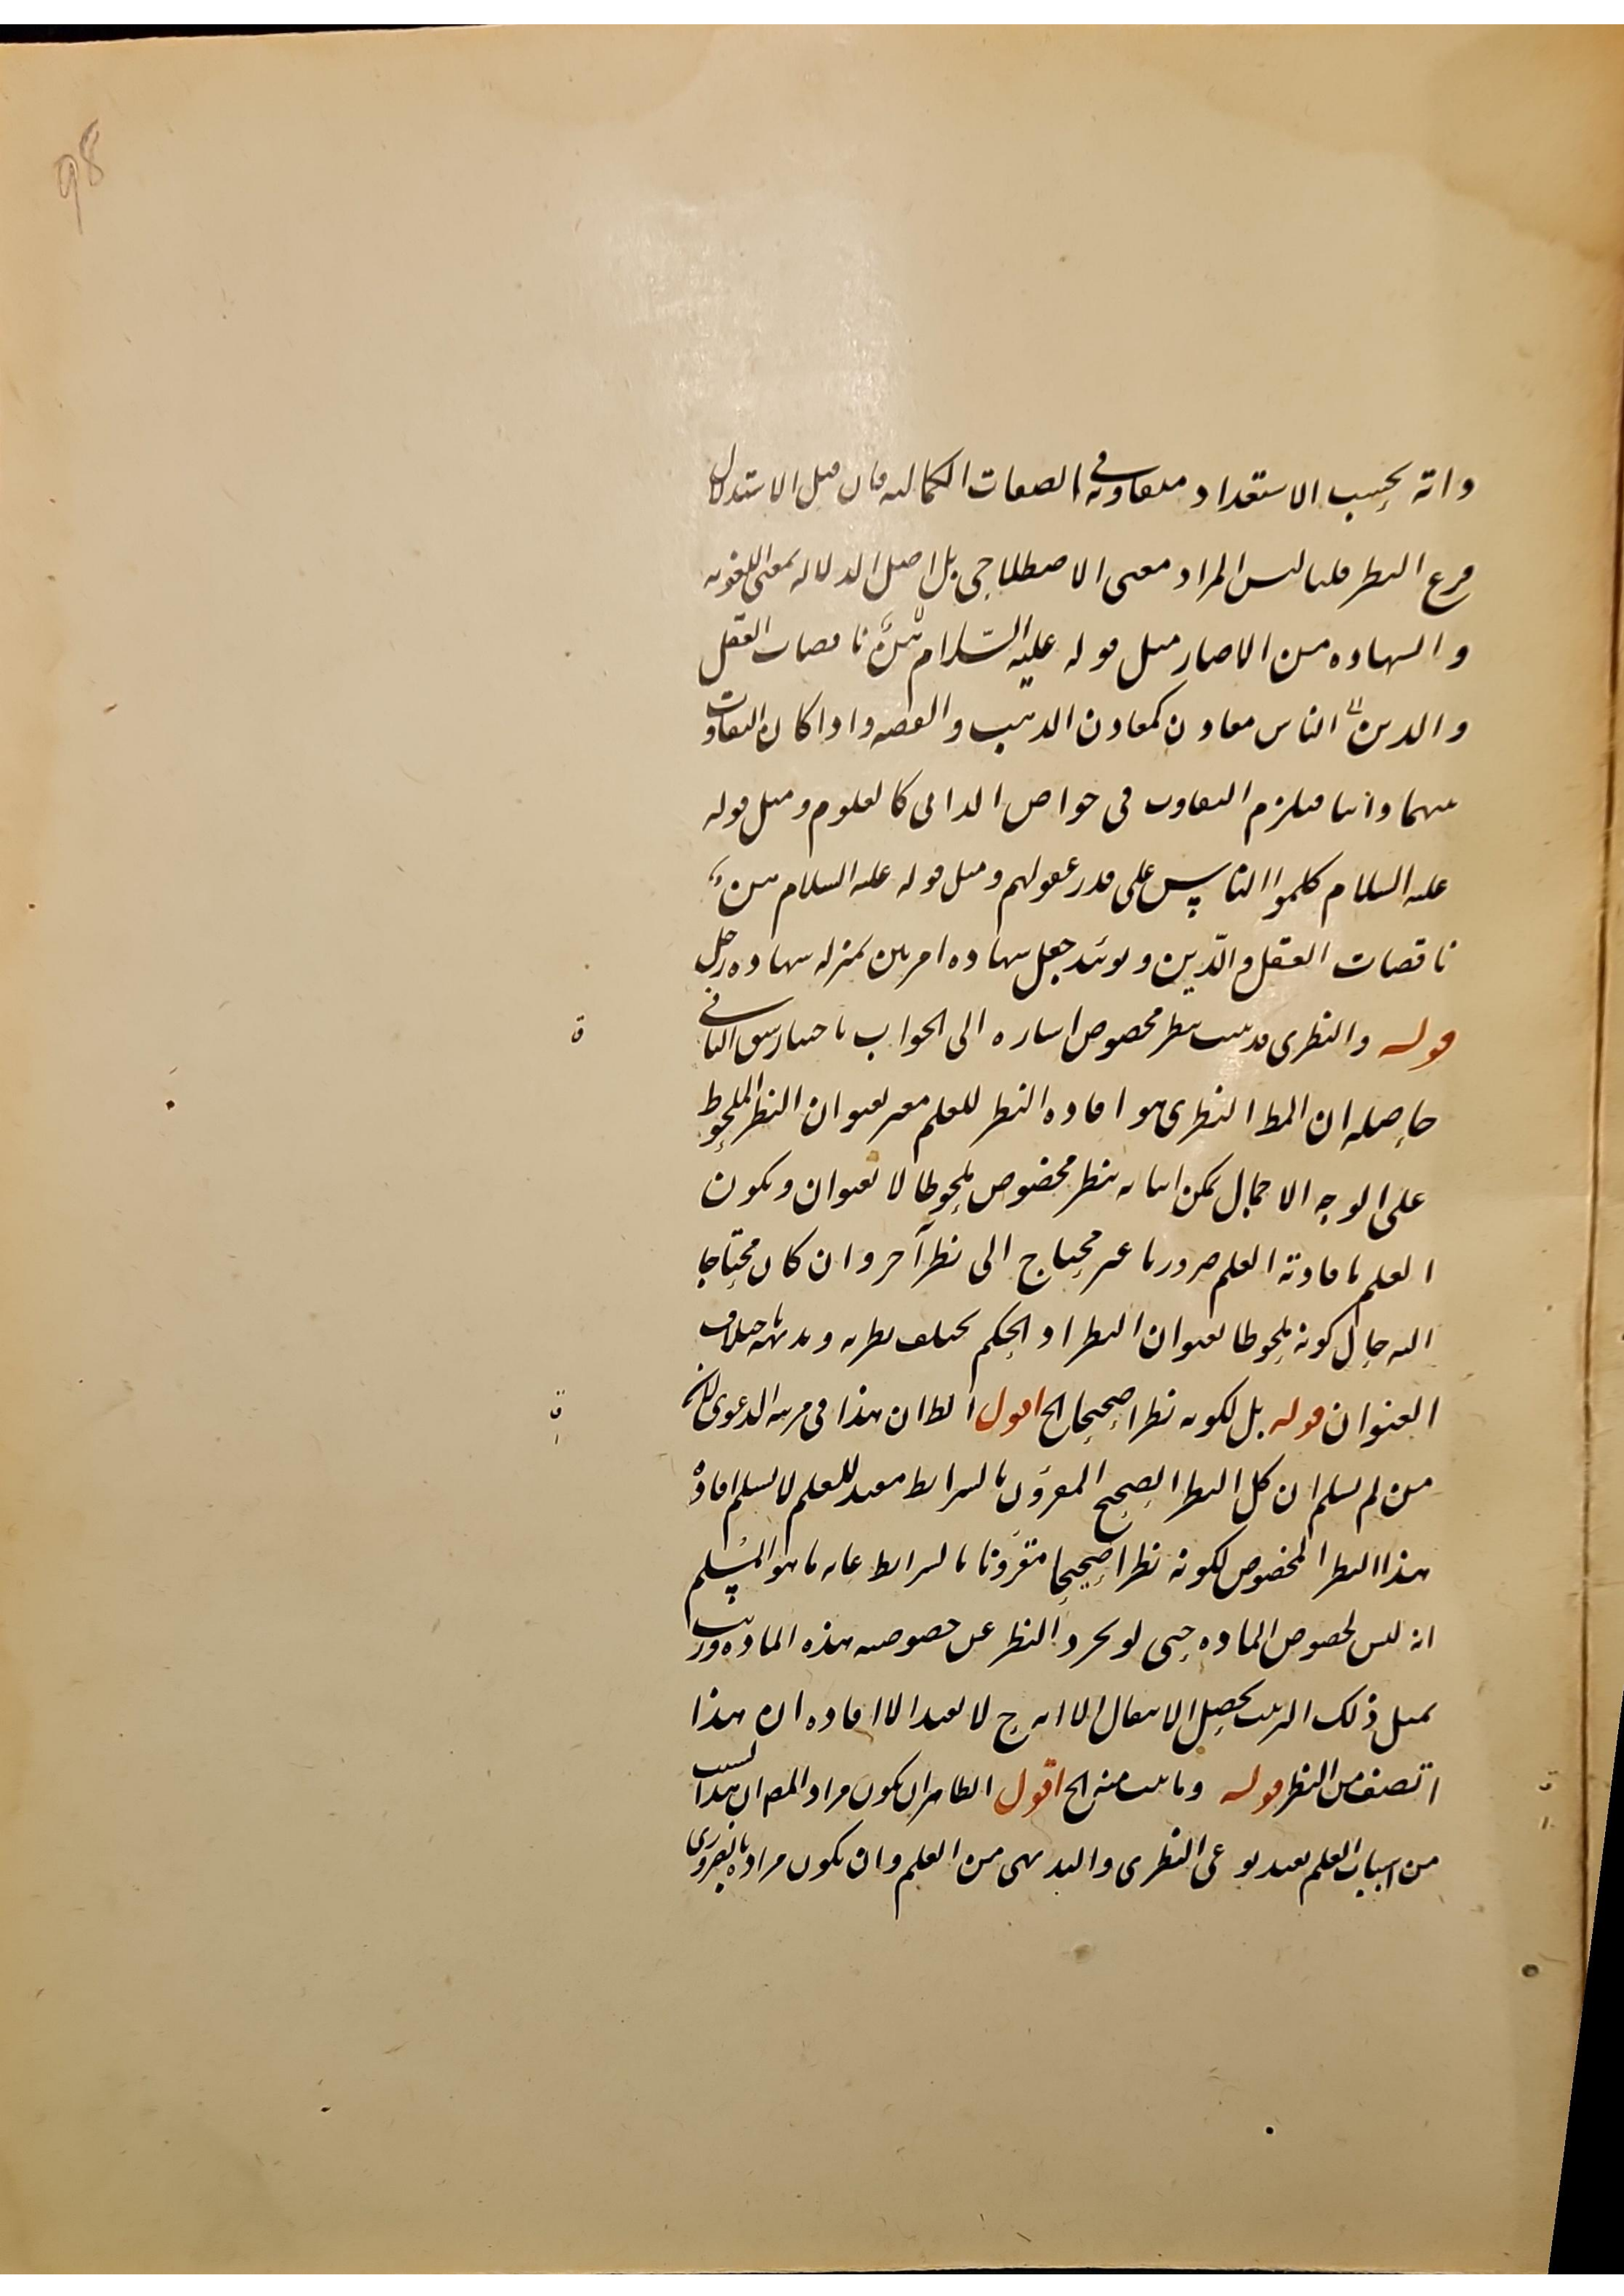 98
وانه بحسب الاستعداد متفاوتة في الصفات الكمالية فان قيل الاستدلال
فرع النظر قلنا ليس المراد معنى الاصطلاحي بل اصل الدلالة بمعنى اللغوية
والشهادة من الاخبار مثل قوله عليه السّلام هنّ ناقصات العقل
والدين الناس معادن كمعادن الذهب والفضة واذا كان التفاوت
بينهما ذاتيا فيلزم التفاوت في خواص الذاتي كالعلوم ومثل قوله
عليه السلام كلموا الناس على قدر عقولهم ومثل قوله عليه السلام هن
ناقصات العقل والدّين ويؤيد جعل شهادة امرأتين بمنزلة شهادة رجل
قوله والنظرى قد يثبت بنظر مخصوص اشارة الى الجواب باختيار شق الثاني
حاصله ان المط النظرى هو افادة النظر للعلم معبر بعنوان النظر الملحوظ
على الوجه الاجمال يمكن اثباته بنظر مخصوص ملحوظا لا بعنوان ويكون
العلم بافادته العلم ضروريا غير محتاج الى نظر آخر وان كان محتاجا
اليه حال كونه ملحوظا بعنوان النظر او الحكم يختلف نظرية وبديهة خلاف
العنوان قوله بل لكونه نظرا صحيحا الخ اقول الظ ان هذا في مرتبة الدعوى لان
من لم يسلم ان كل النظر الصحيح المقرون بالشرايط مفيد للعلم لا يسلم افادة
هذا النظر المخصوص لكونه نظرا صحيحا مقرونا بالشرايط غاية ما هو المسلم
انه ليس لخصوص المادة حتى لو يجرد النظر عن خصوصية هذه المادة ورتب
بمثل ذلك الترتيب يحصل الانتقال الا انه ح لا يفيد الا افادة ان هذا
الصنف من النظر قوله وما يثبت منه الخ اقول الظاهر ان يكون مراد المص ان هذا السبب
من اسباب العلم يفيد نوعي النظرى والبديهى من العلم وان يكون مراده بالضرورى